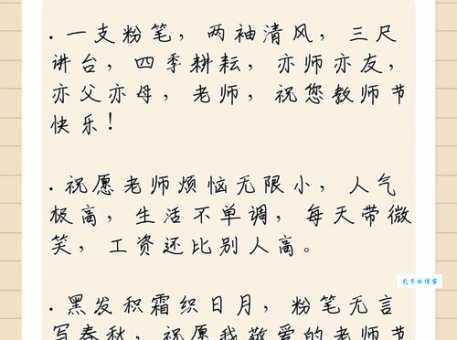 .一支粉笔，两袖清风，三尺
讲台，四季耕耘，亦师亦友，
亦父亦母，老师，祝您教师节
快乐！
.祝愿老师烦恼无限小，人气
极高，生活不单调，每天带微
笑，工资还比别人高。
.黑发积霜织日月，粉笔无言
写春秋，祝愿我敬爱的老师节